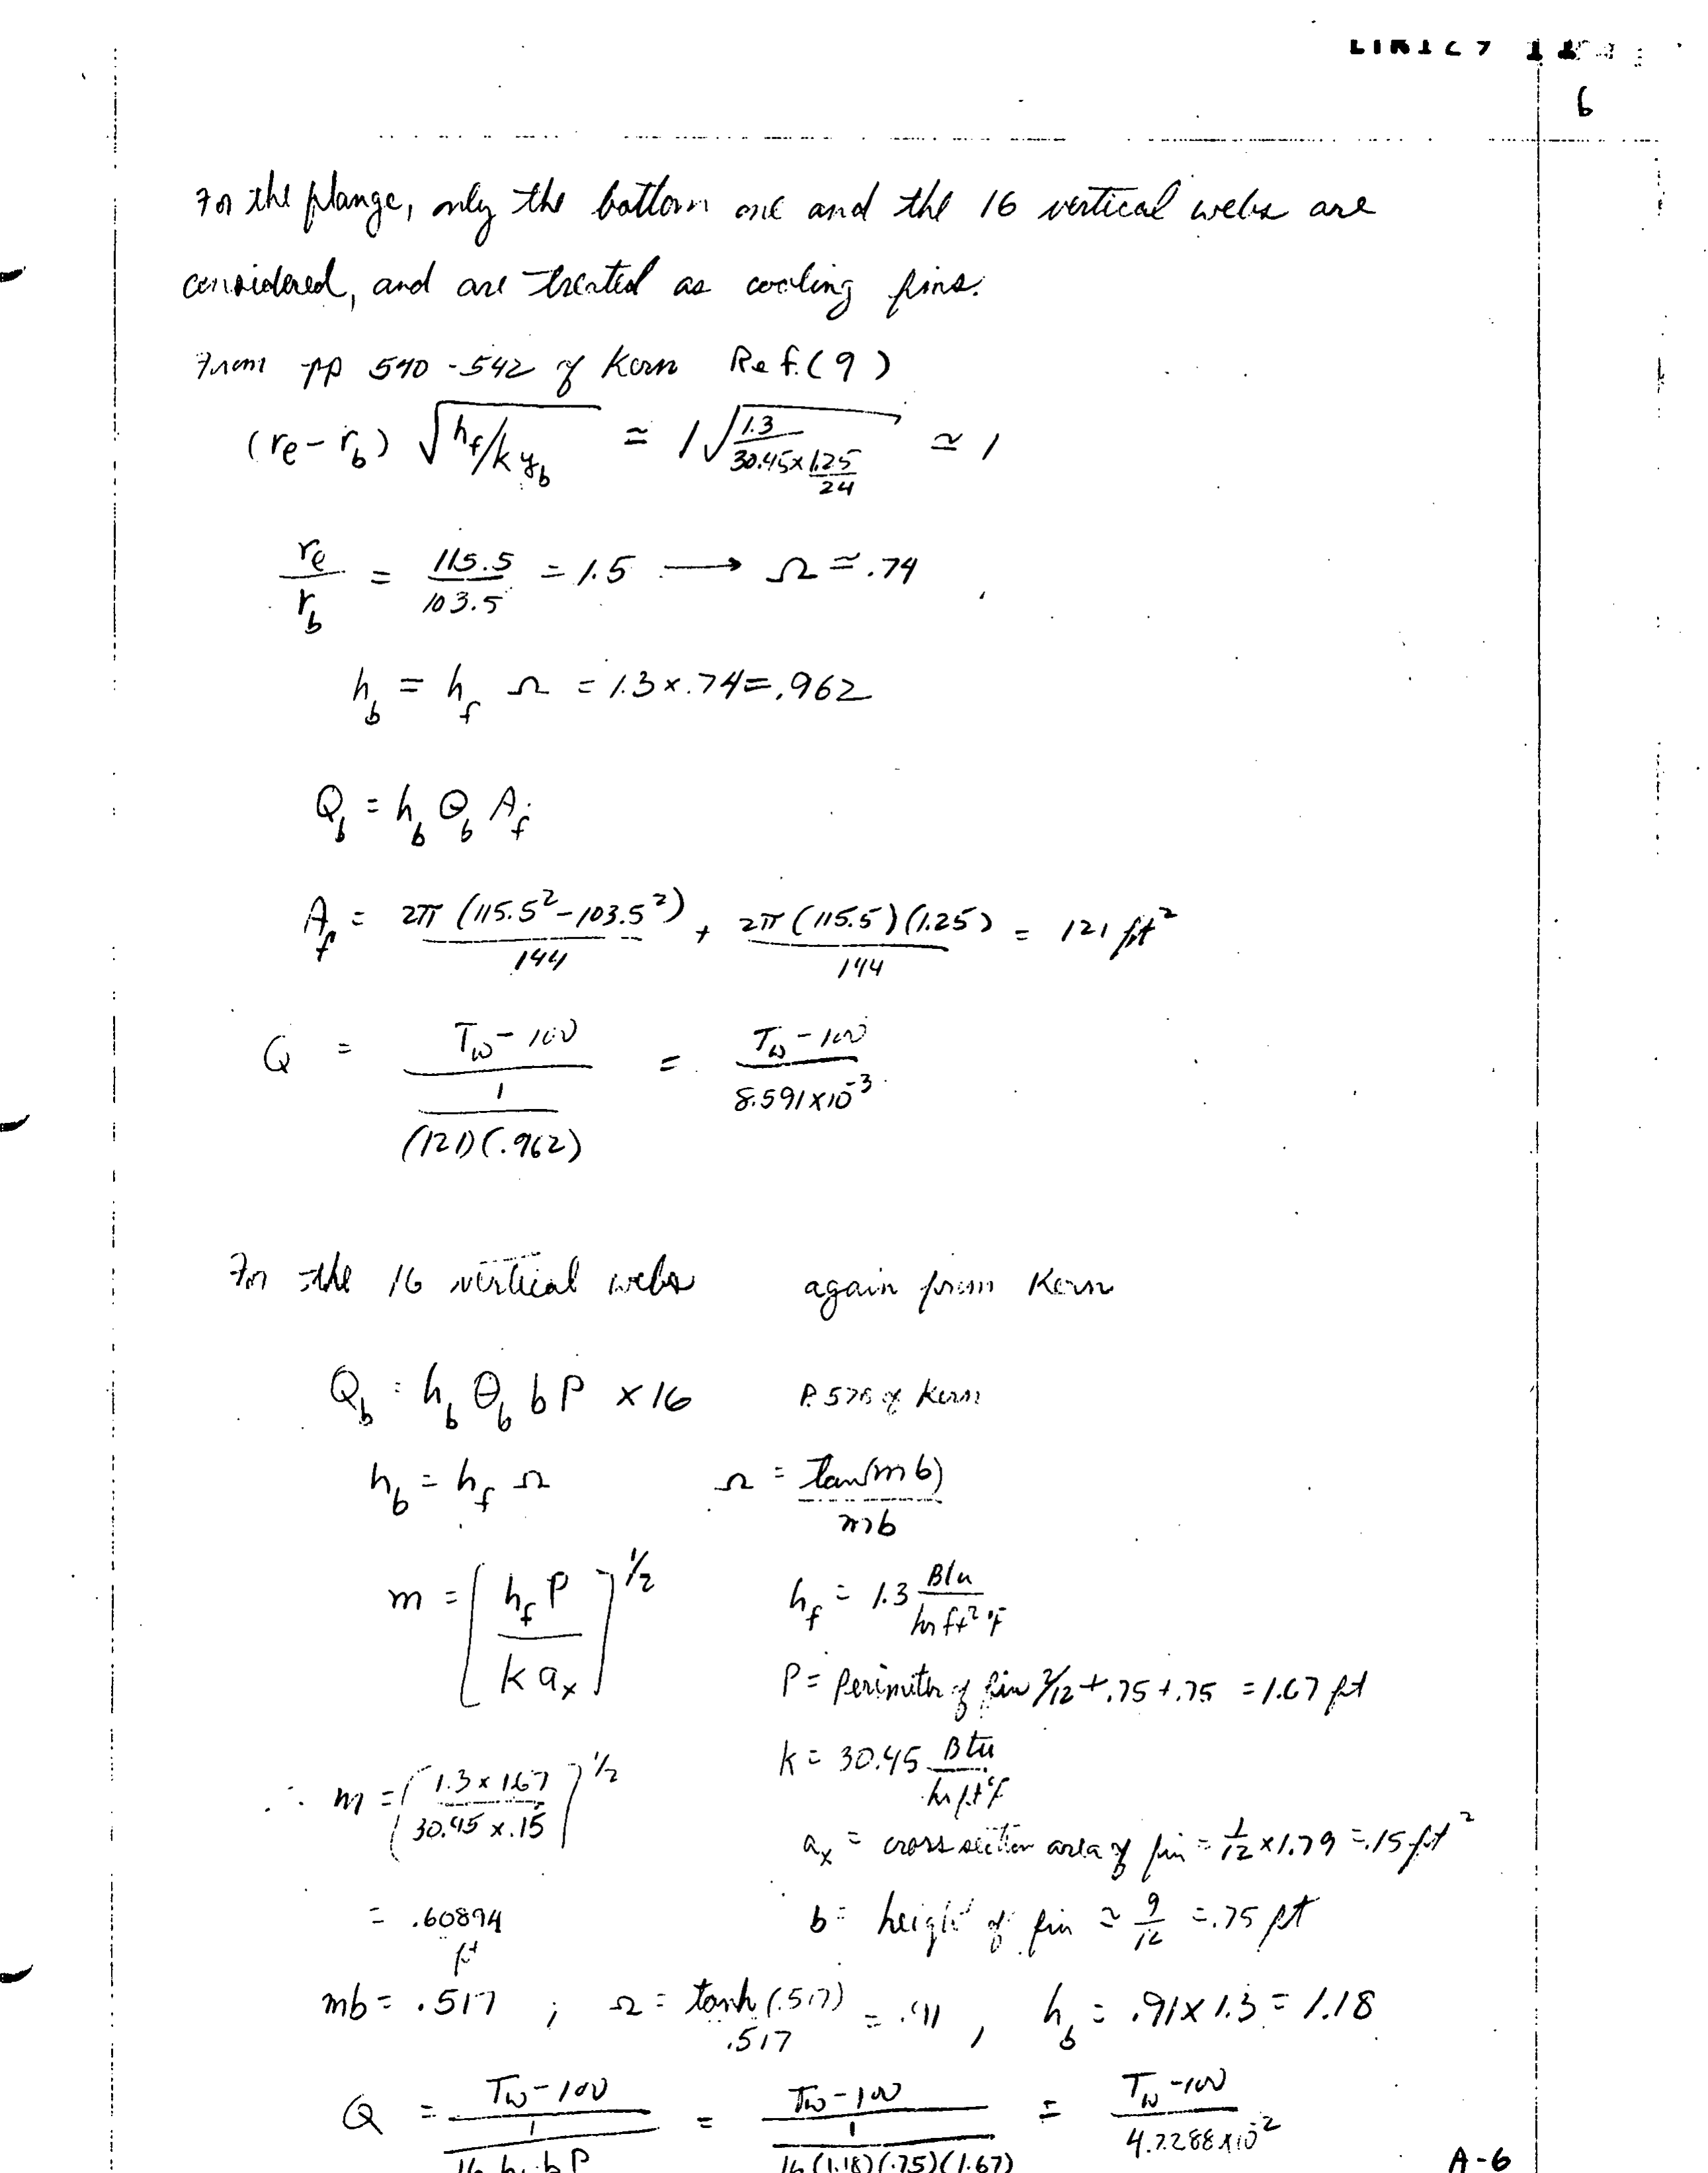 6
For the flange, only the bottom one and the 16 vertical webs are
considered, and are treated as cooling fins.
From pp 540-542 of Kern Ref.(9)
(re - rb) √(hf/k yb) ≃ 1 √(1.3 / (30.45 x 1.25/24)) ≃ 1
re/rb = 115.5/103.5 = 1.5 → Ω ≃ .74
hb = hf Ω = 1.3 x .74 = .962
Qb = hb Θb Af
Af = 2π (115.5² - 103.5²)/144 + 2π (115.5)(1.25)/144 = 121 ft²
Q = (Tw - 100) / (1/((121)(.962))) = (Tw - 100) / 8.591 x 10⁻³
For the 16 vertical webs again from Kern
Qb = hb Θb b P x 16 P. of Kern
hb = hf Ω Ω = tan(mb)/mb
m = [hf P / k ax]^1/2 hf = 1.3 Btu/hr ft² °F
P = Perimeter of fin 2/12 + .75 + .75 = 1.67 ft
k = 30.45 Btu/hr ft °F
∴ m = (1.3 x 1.67 / 30.45 x .15)^1/2
ax = cross section area of fin = 1/12 x 1.79 = .15 ft²
= .60894/ft b = height of fin ≃ 9/12 = .75 ft
mb = .517 ; Ω = tanh (.517)/.517 = .91 , hb = .91 x 1.3 = 1.18
Q = (Tw - 100) / (1/(16 hb b P)) = (Tw - 100) / (1/(16 (1.18)(.75)(1.67))) = (Tw - 100) / 4.2288 x 10⁻²
A-6